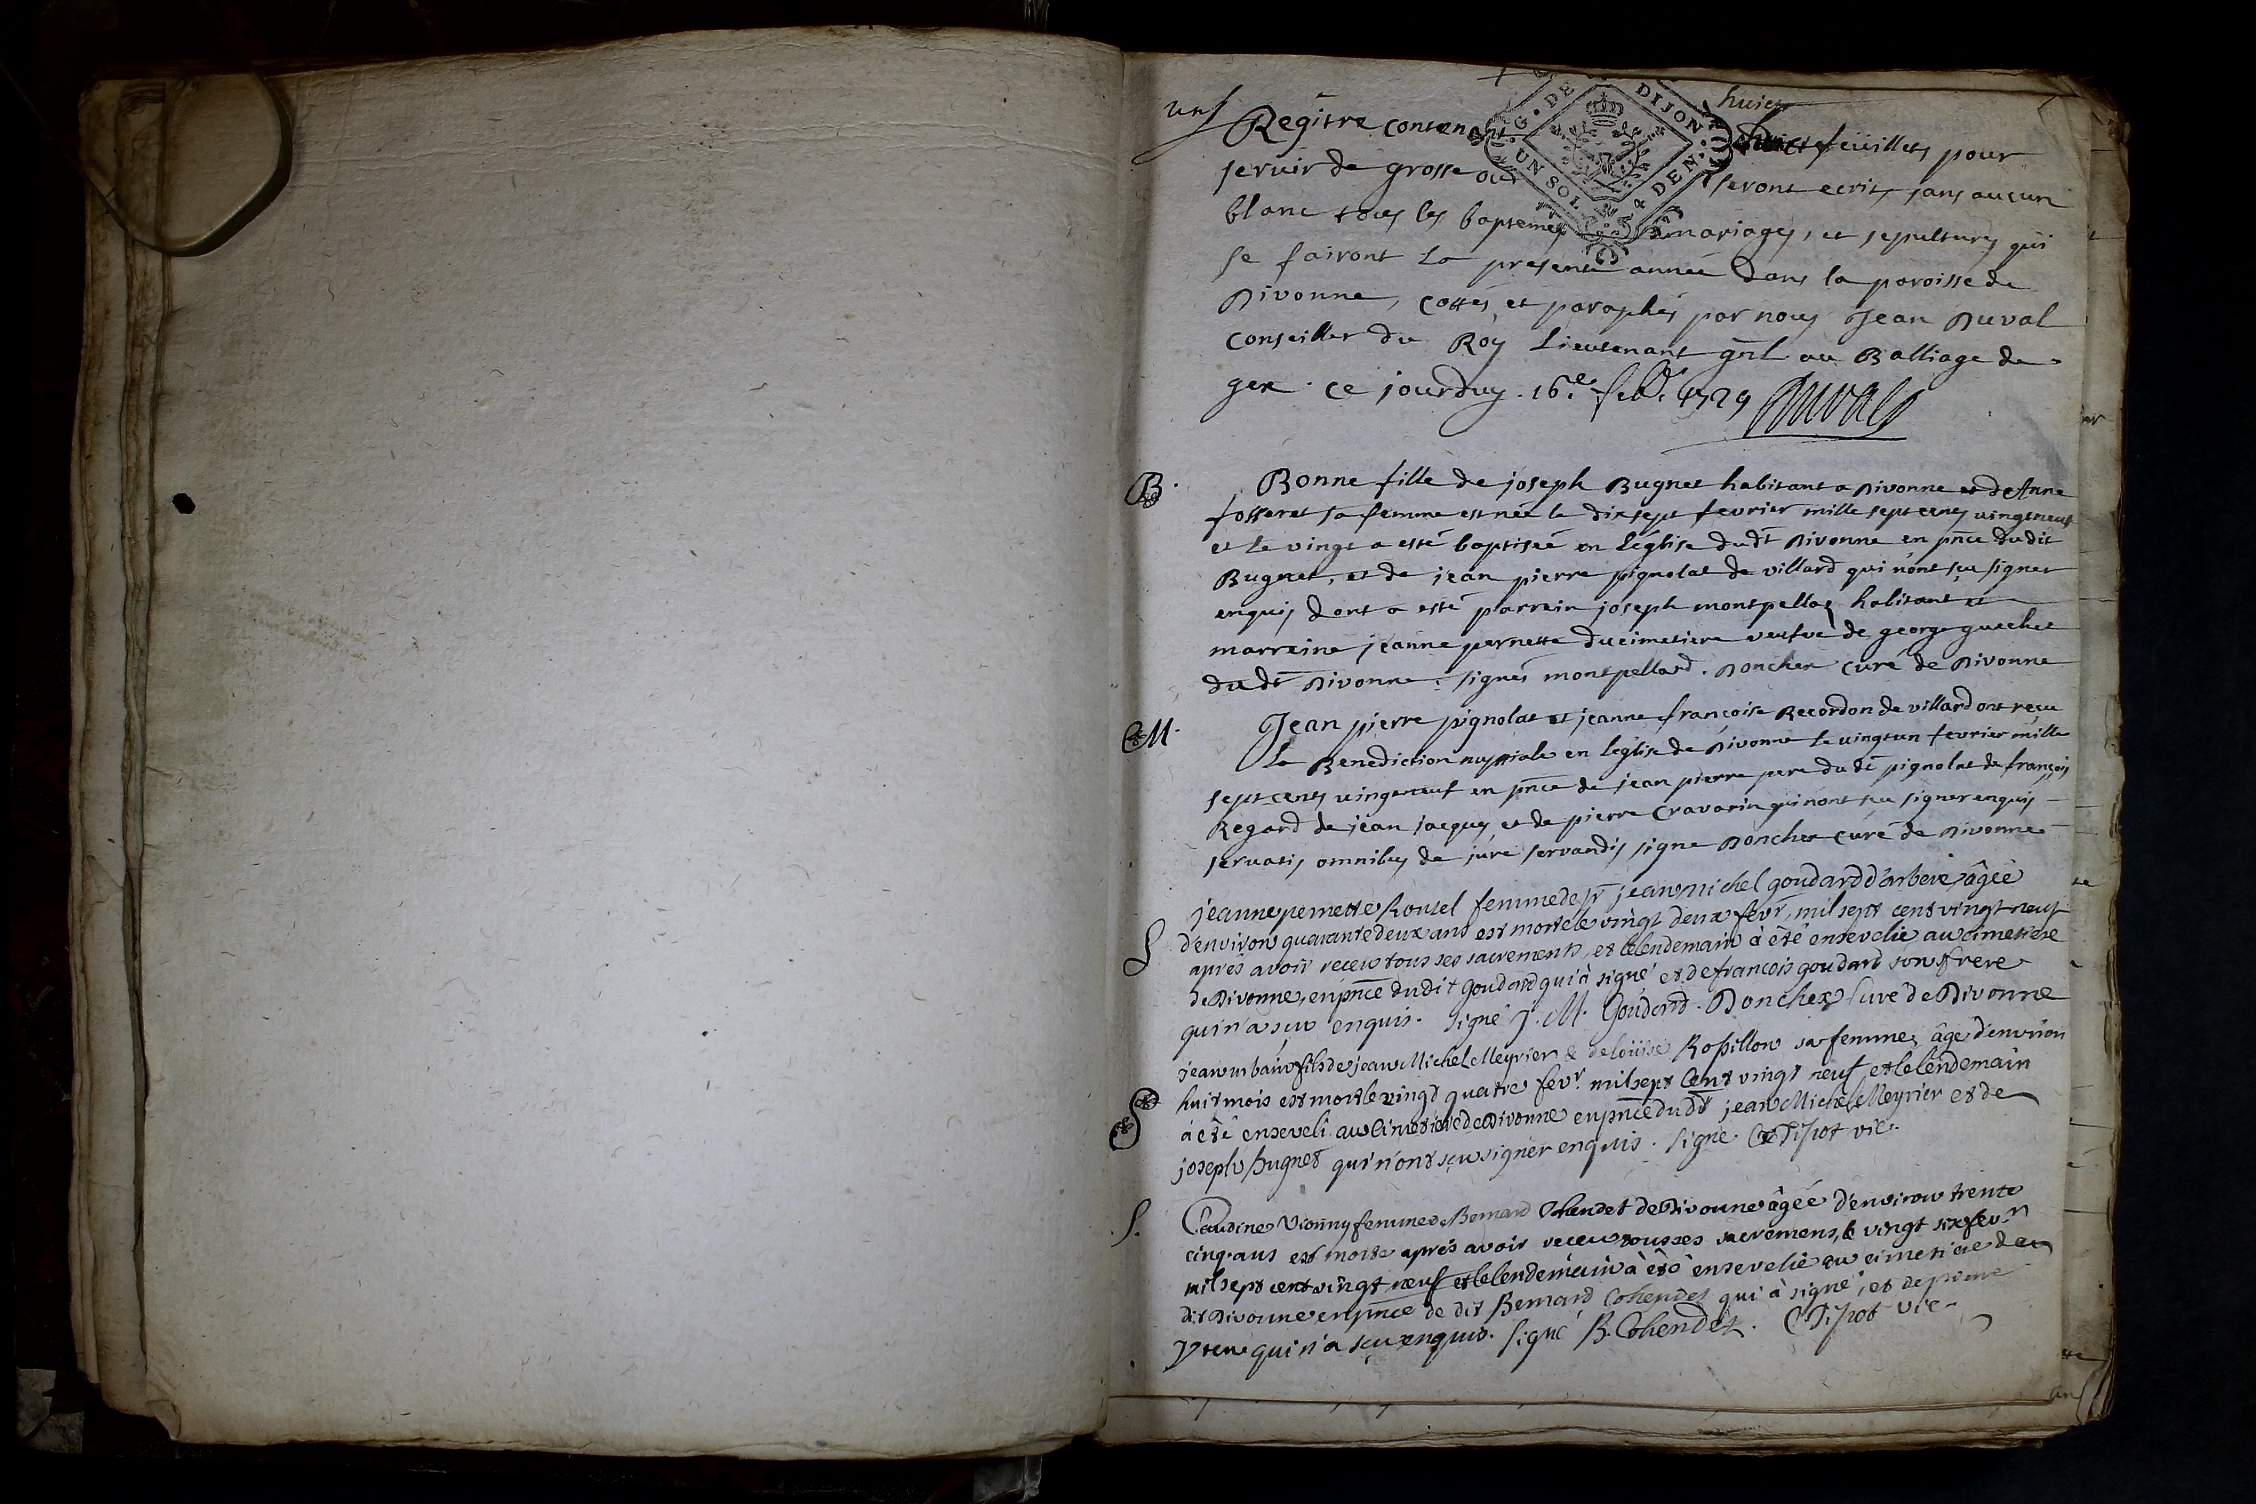 un
huict
G. DE DIJON
UN SOL 4 DEN.
Regître contenant huict feüillets pour
servir de grosse ou seront ecrits sans aucun
blanc tous les baptemes mariages, et sepultures qui
se fairont la presente année dans la paroisse de
Divonne, cottés et paraphés par nous Jean Duval
Conseiller du Roy Lieutenant gñl au Balliage de
gex. ce jourduy. 16.e feb. 1729 Duval
B.
Bonne fille de joseph Bugnet habitant a Divonne et de Anne
fosseret sa femme est née le dix sept fevrier mille sept cents vingt neuf
et le vingt a esté baptiseé en Léglise dudt Divonne en pñce dudit
Bugnet, et de jean pierre pignolat de villard qui n'ont sçu signer
enquis dont a esté parrain joseph montpellaz habitant et
marraine jeanne pernette ducimetiere veufve de george guechet
dudt Divonne. signés montpellard. Donchex curé de Divonne
M.
Jean pierre pignolat et jeanne françoise Recordon de villard ont reçu
La Benediction nuptiale en leglise de Divonne le vingt un fevrier mille
sept cents vingt neuf en pñce de jean pierre pere du dt pignolat de françois
Regard de jean jacques et de pierre Cravarin qui n'ont sçu signer enquis
servatis omnibus de jure servandis signe Donchex curé de Divonne
S
jeanne pernette Rousel femme de sr jean michel goudard d'arbere âgée
d'environ quarante deux ans est morte le vingt deux fevr. mil sept cent vingt neuf
après avoir receu tous ses sacrements, et le lendemain à été ensevelie au cimetiere
de Divonne, en pñce dudit goudard qui à signé et de francois goudard son frere
qui n'a sçu enquis. signé J. M. Goudard. Donchex Curé de Divonne
S
jean urbain fils de jean Michel Meyrier & de loüise Rossillon sa femme, âge d'environ
huit mois est mort le vingt quatre fevr. mil sept Cent vingt neuf et le lendemain
à été enseveli au Cimetiere de Divonne en pñce du dt jean Michel Meyrier et de
joseph bugnet qui n'ont sçu signer enquis. signé. vic.
S.
Claudine Vionny femme de Bernard Cohendet de Divonne âgée d'environ trente
cinq ans est morte après avoir receu tous ses sacremens, le vingt six fevr.
mil sept cent vingt neuf et le lendemain à été ensevelie au cimetiere du
dit Divonne en pñce de dit Bernard Cohendet qui à signé, et de pierre
qui n'a sçu enquis. signé B. Cohendet. vic.